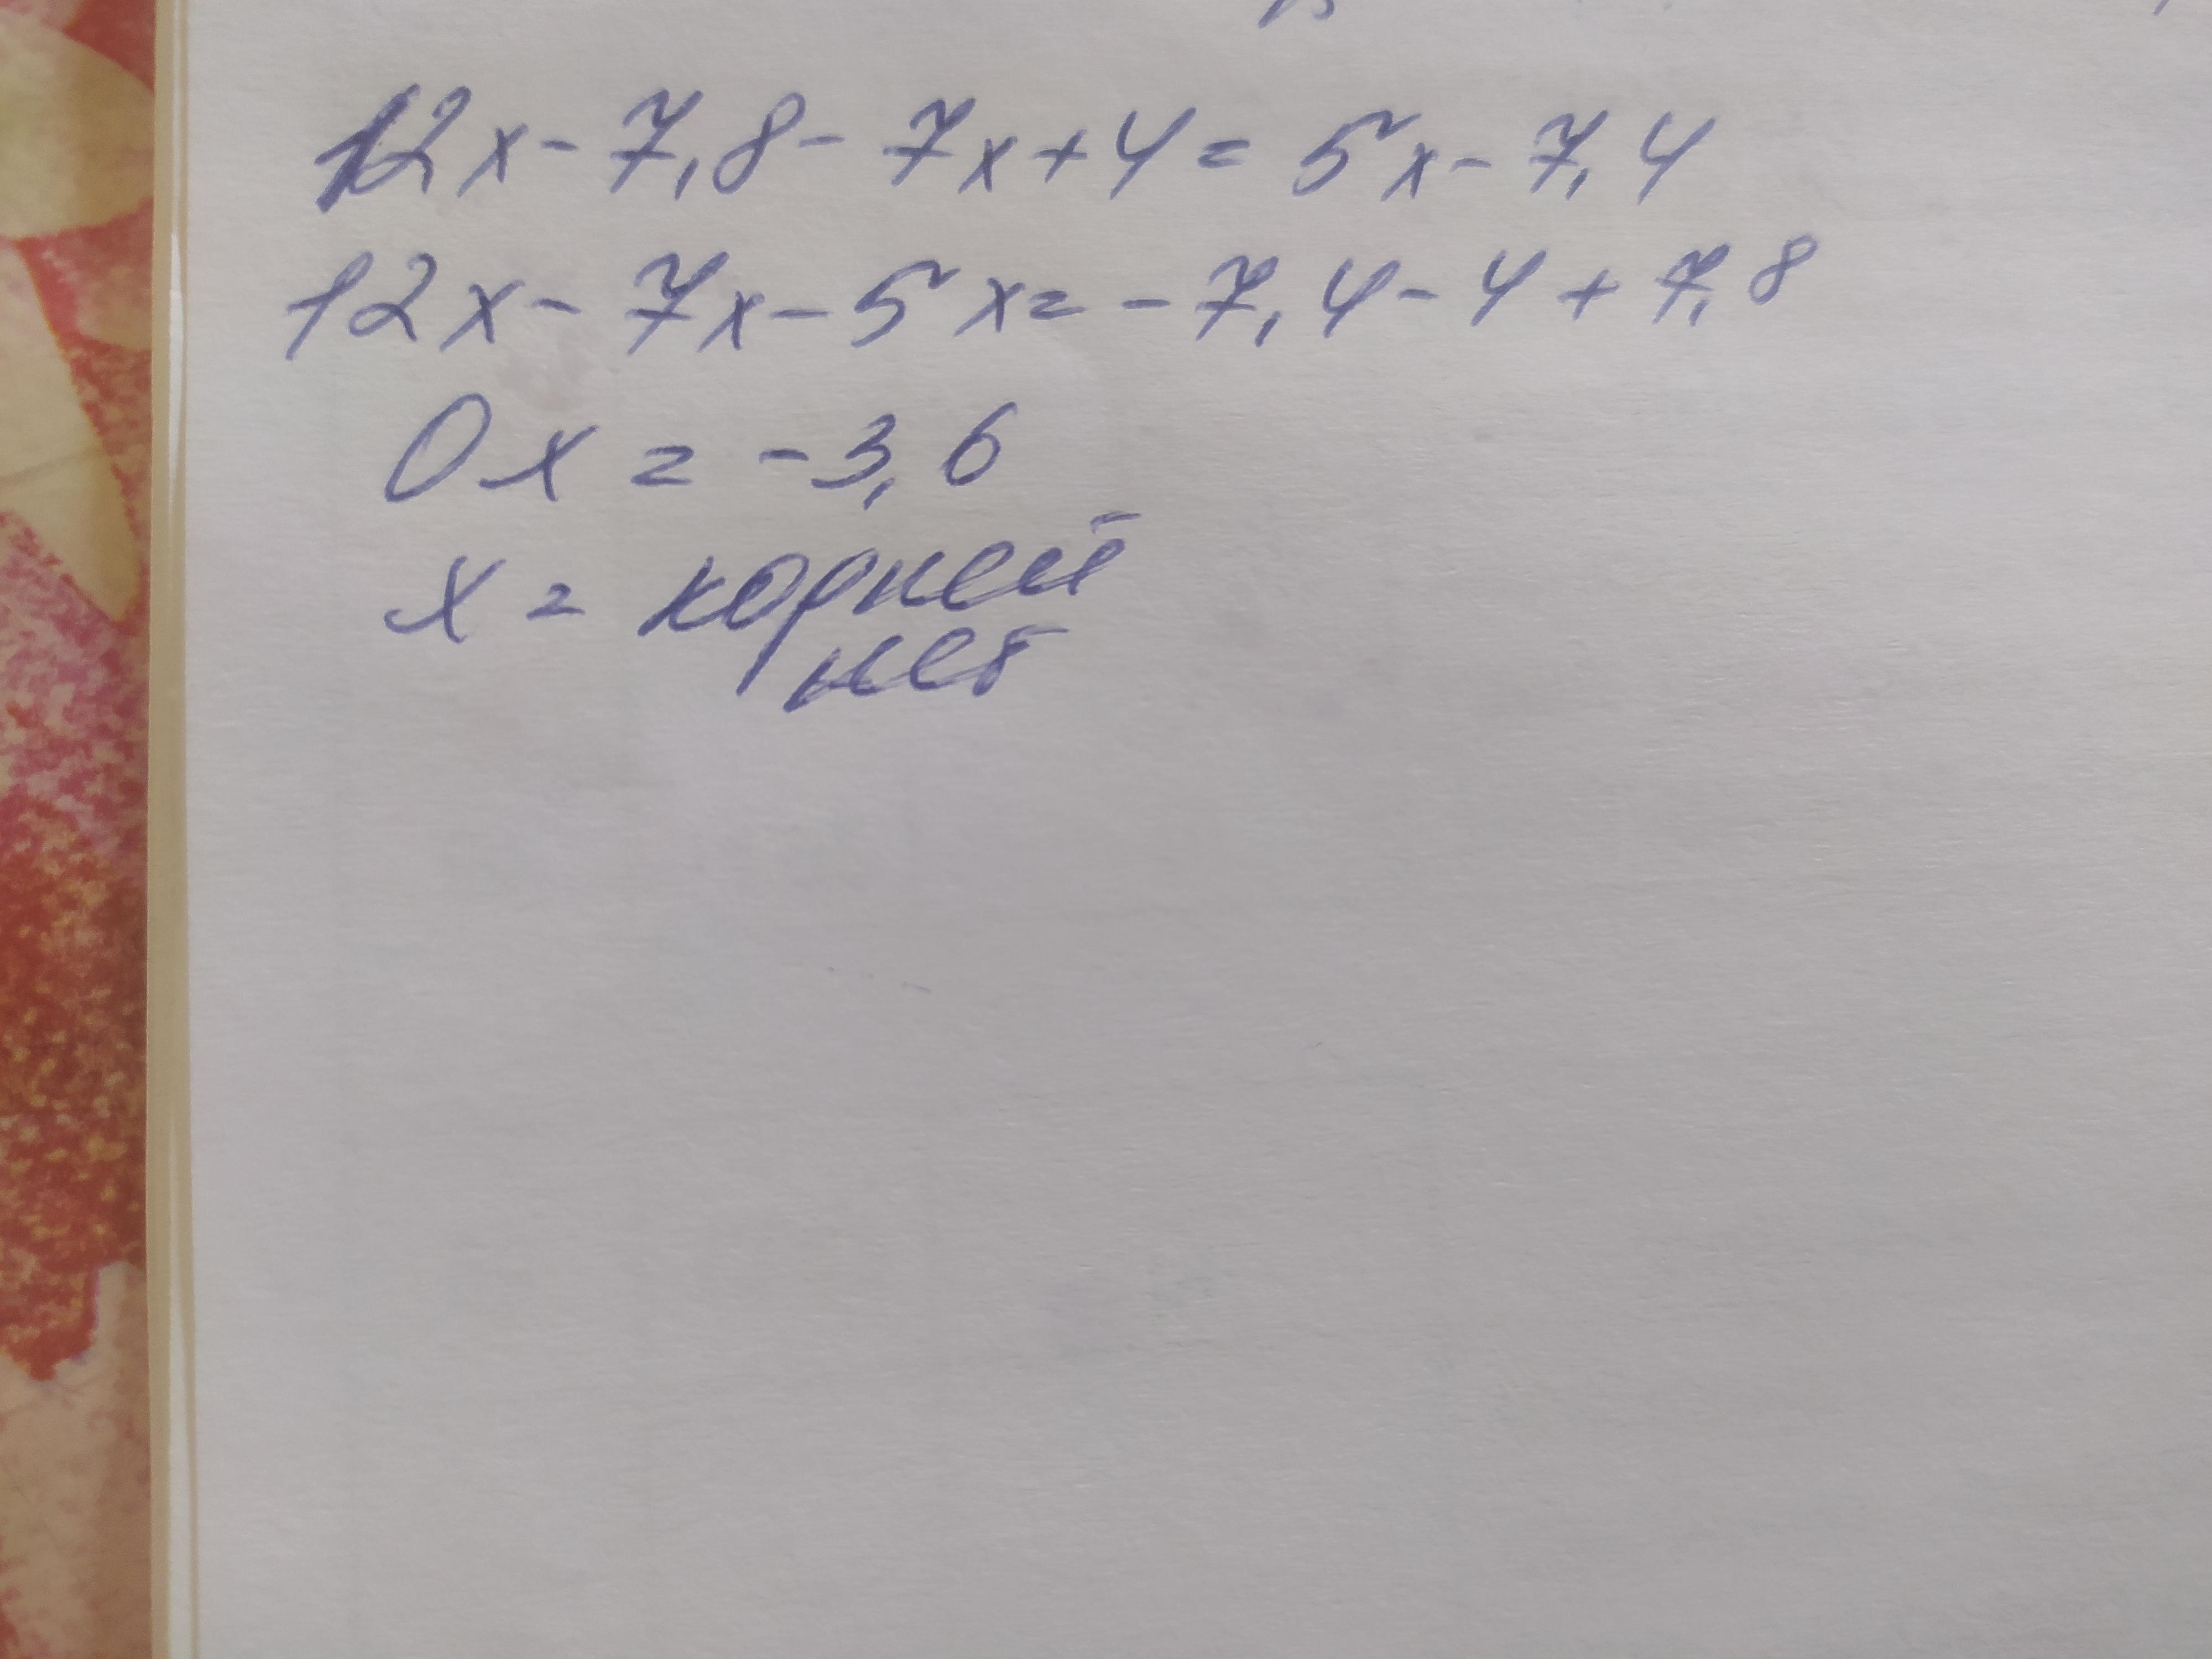 12x - 7,8 - 7x + 4 = 5x - 7,4
12x - 7x - 5x = - 7,4 - 4 + 7,8
0x = - 3,6
x = корней
нет